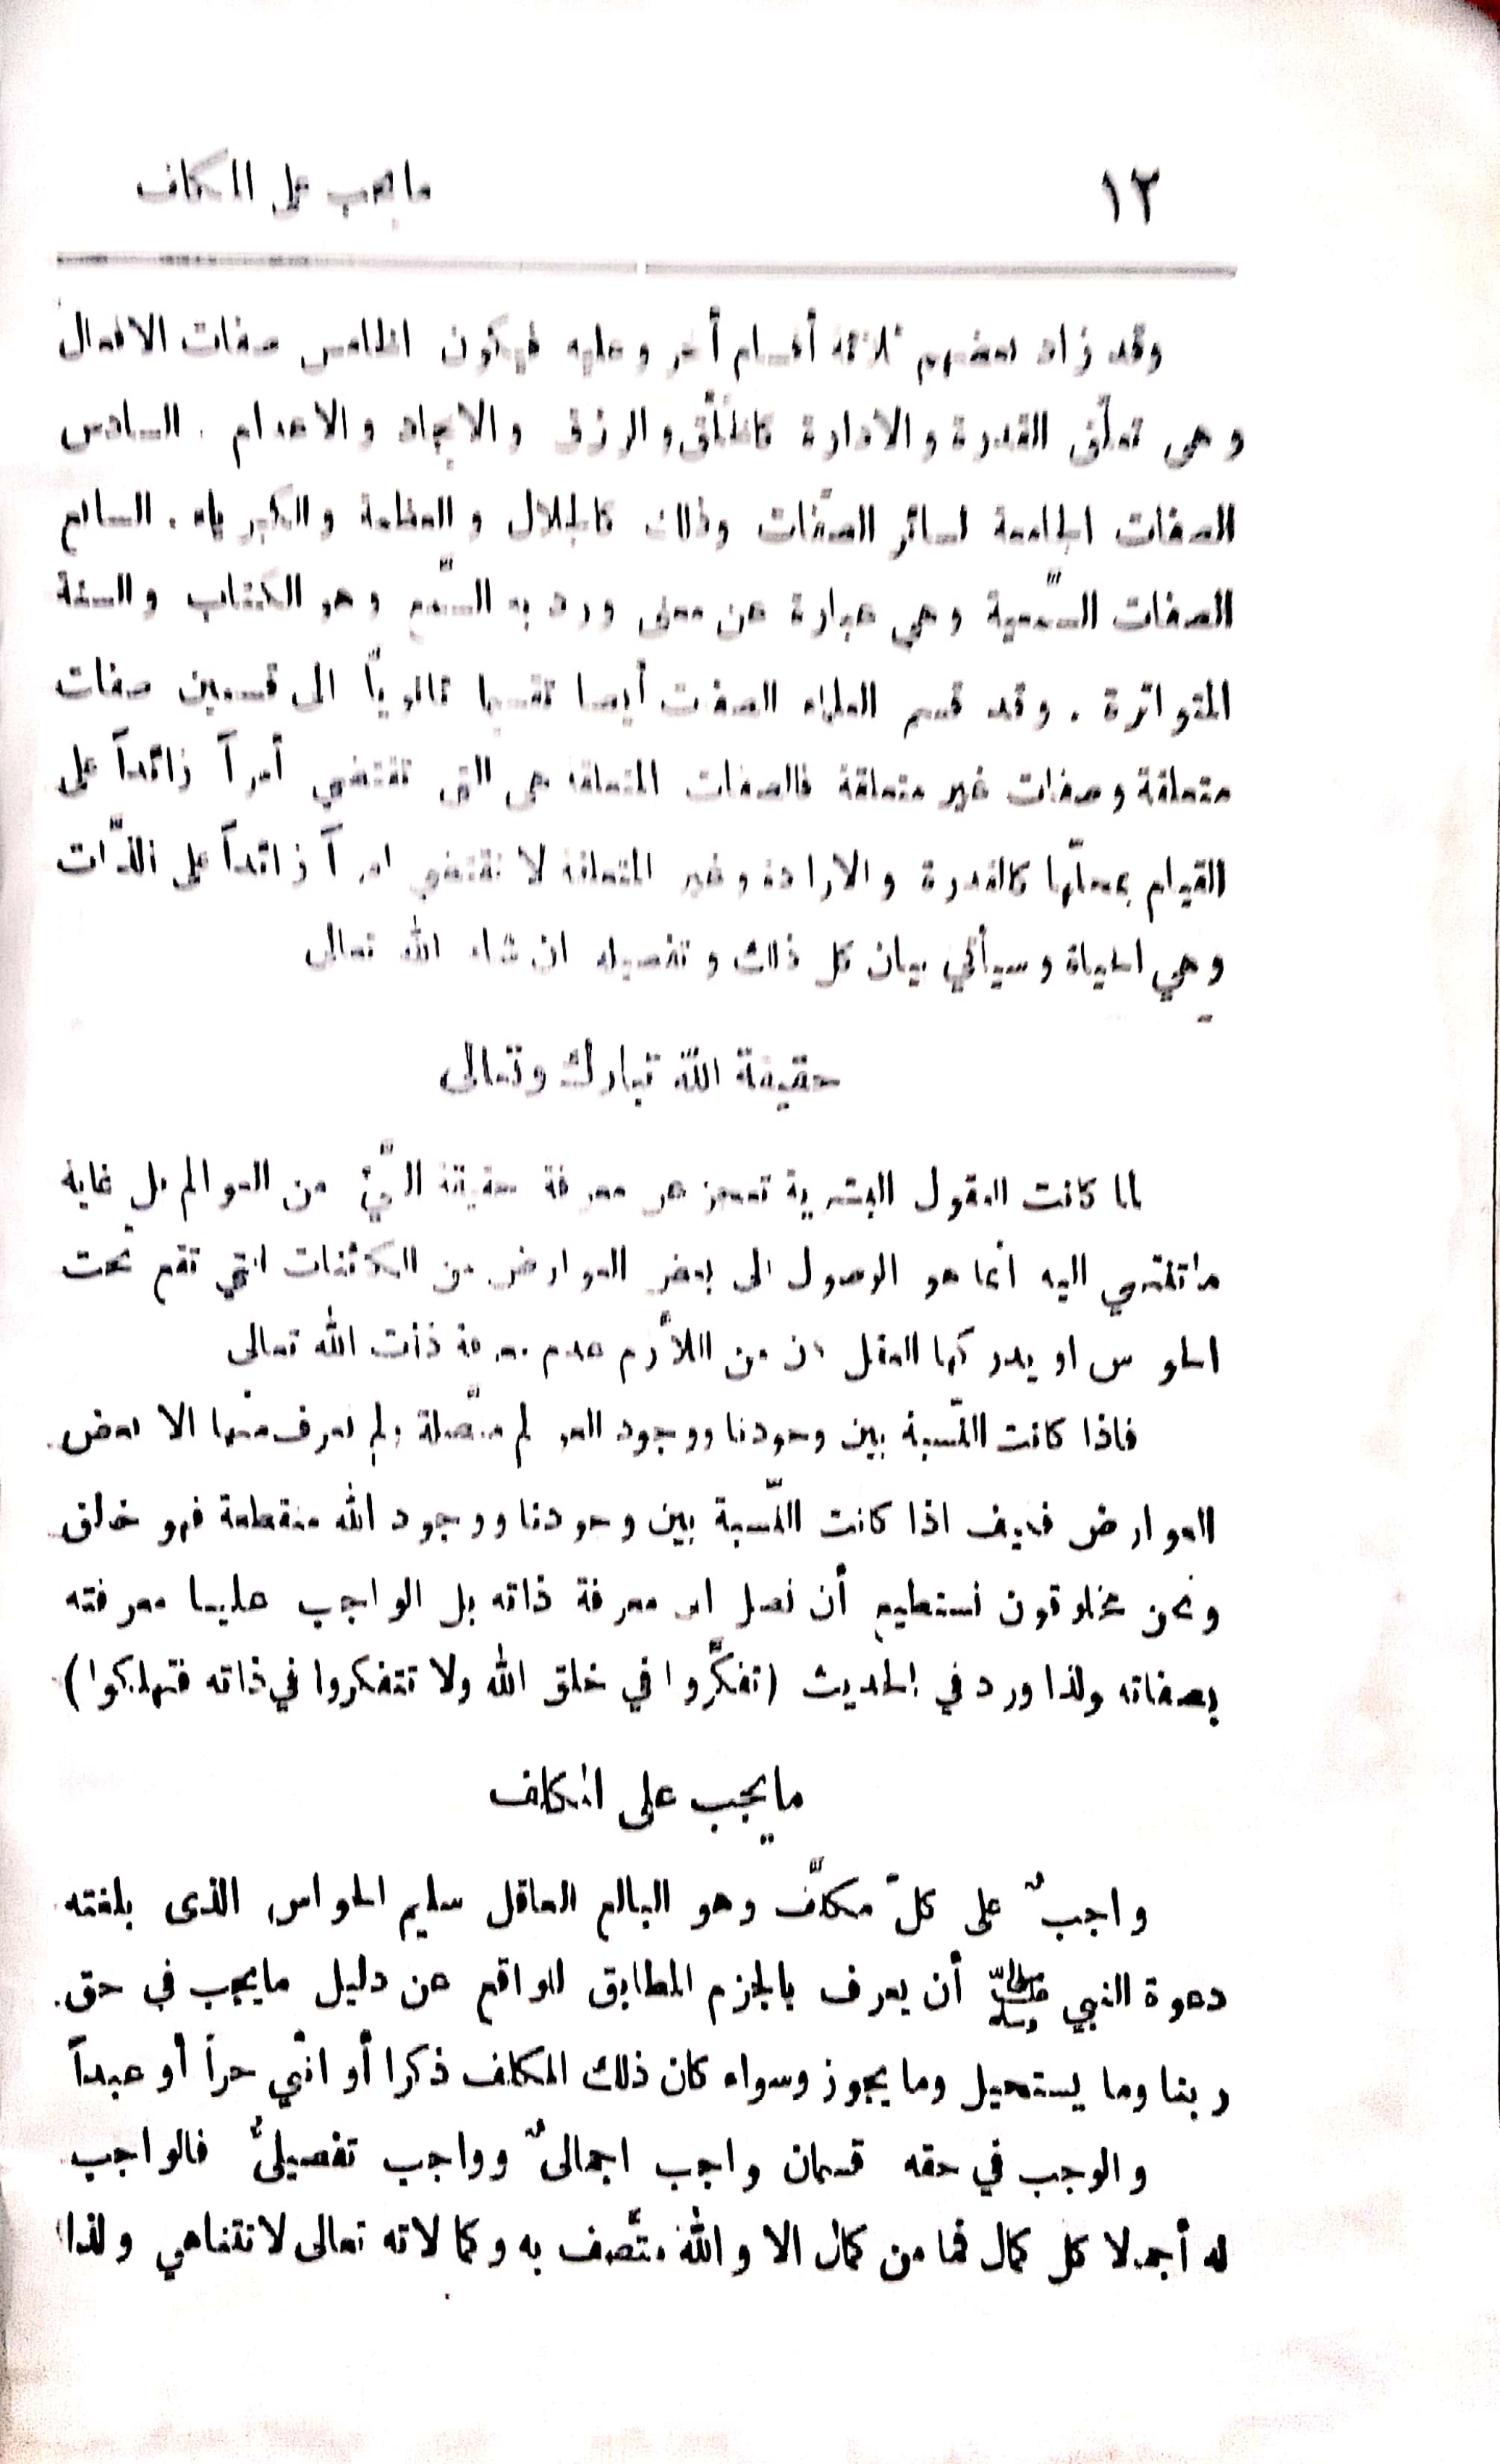 ١٢
ما يجب على المكلف
وقد زاد بعضهم ثلاثة أقسام أخر وعليه فيكون الخامس صفات الافعال
وهى تعلّق القدرة والارادة كالخلْق والرزق والايجاد والاعدام . السادس
الصفات الجامعة لسائر الصّفات وذلك كالجلال والعظمة والكبرياء . السابع
الصفات السّمعية وهي عبارة عن معنى ورد به السّمع وهو الكتاب والسنة
المتواترة . وقد قسم العلماء الصفات أيضا تقسيما ثانوياً الى قسمين صفات
متعلقة وصفات غير متعلقة فالصفات المتعلقة هى التى تقتضي أمراً زائداً على
القيام بمحلّها كالقدرة والارادة وغير المتعلقة لا تقتضي امراً زائداً على الذّات
وهي الحياة وسيأتي بيان كل ذلك وتفصيله ان شاء الله تعالى
حقيقة اللّه تبارك وتعالى
لما كانت العقول البشرية تعجز عن معرفة حقيقة الشّئ من العوالم بل غاية
ما تنتهي اليه انما هو الوصول الى بعض العوارض من الكائنات التي تقع تحت
الحواس او يدركها العقل كان من اللاّزم عدم معرفة ذات الله تعالى
فاذا كانت النّسبة بين وجودنا ووجود العوالم متّصلة ولم نعرف منها الا بعض
العوارض فكيف اذا كانت النّسبة بين وجودنا ووجود الله منقطعة فهو خالق
ونحن مخلوقون نستطيع أن نصل الى معرفة ذاته بل الواجب علينا معرفته
بصفاته ولذا ورد في الحديث (تفكّروا في خلق الله ولا تتفكروا في ذاته فتهلكوا)
ما يجب على المكلف
واجبٌ على كلّ مكلّف وهو البالغ العاقل سليم الحواس الذى بلغته
دعوة النبي ﷺ أن يعرف بالجزم المطابق للواقع عن دليل ما يجب في حق
ربنا وما يستحيل وما يجوز وسواء كان ذلك المكلف ذكرا أو انثي حراً أو عبداً
والوجب في حقه قسمان واجب اجمالىٌ وواجب تفصيلىٌ فالواجب
له أجمالا كل كمال فما من كمال الا واللّه متّصف به وكمالاته تعالى لا تتناهي ولذا